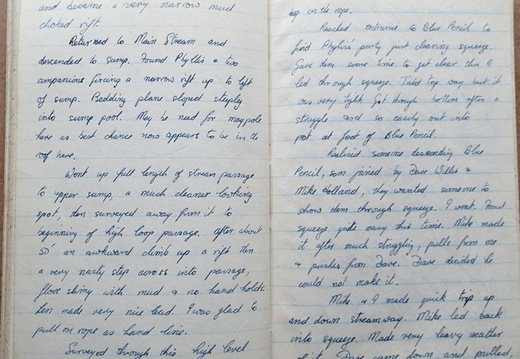 and became a very narrow mud
choked rift.
Returned to Main Stream and
descended to sump. Found Phyllis & two
companions forcing a narrow rift up to left
of sump. Bedding plane sloped steeply
into sump pool. May be need for maypole
here as best chance now appears to be in the
roof here.
Went up full length of stream passage
to upper sump, a much cleaner looking
spot, then surveyed away from it to
beginning of high loop passage, after about
50' an awkward climb up a rift then
a very nasty step across into passage,
floor shiny with mud & no hand holds
Len made very nice lead. I was glad to
pull on rope as hand line.
Surveyed through this high level
on the rope.
Reached entrance to Blue Pencil to
find Phyllis's party just clearing squeeze.
Gave them some time to get clear then I
led through squeeze. Tried top way but it
was very tight. Got through bottom after a
struggle and so easily out into
pot at foot of Blue Pencil.
Realised someone descending Blue
Pencil, soon joined by Dave Willis &
Mike Holland, they wanted someone to
show them through squeeze. I went. Found
squeeze quite easy this time. Mike made
it after much struggling, pulls from me
& pushes from Dave. Dave decided he
could not make it.
Mike & I made quick trip up
and down streamway. Mike led back
into squeeze. Made very heavy weather
of it. Dave came down and pulled